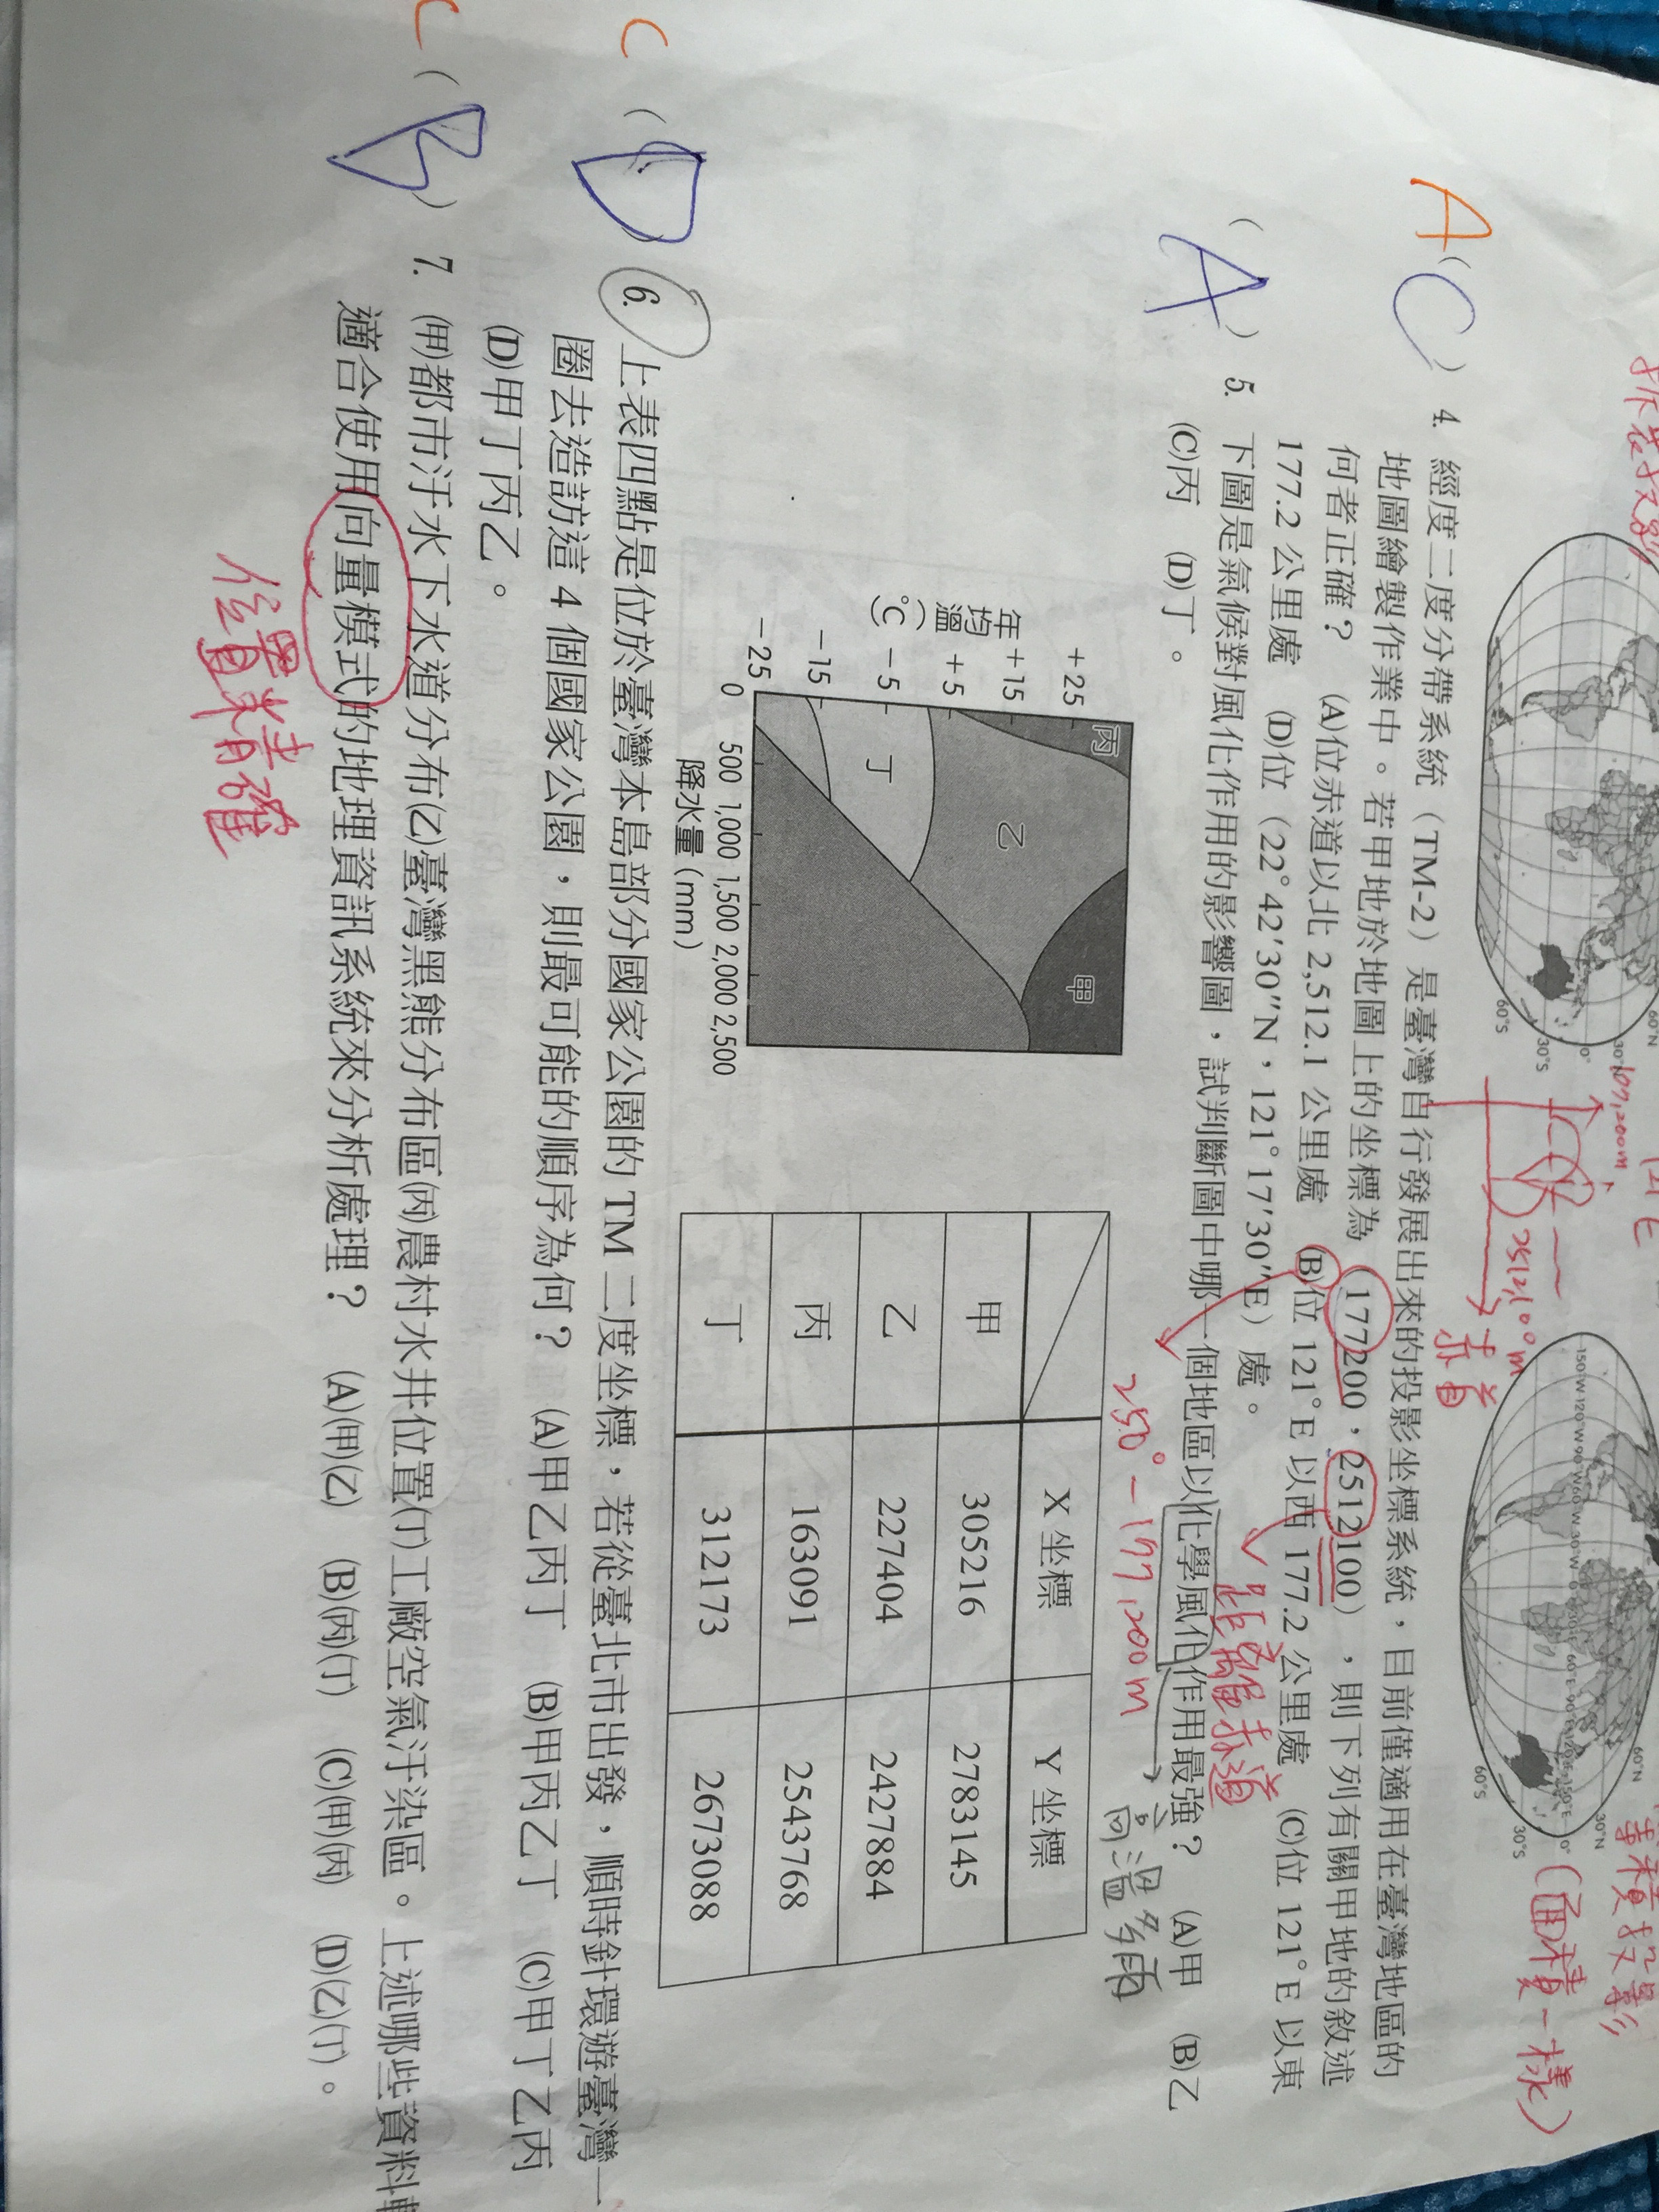 拆裝投影
60°N
30°N
0°
30°S
60°S
107,200m
2512,100m
赤道
150°W 120°W 90°W 60°W 30°W 0° 30°E 60°E 90°E 120°E 150°E
60°N
30°N
0°
30°S
60°S
積投影
(面積一樣)
A (C) 4. 經度二度分帶系統(TM-2)是臺灣自行發展出來的投影坐標系統，目前僅適用在臺灣地區的
地圖繪製作業中。若甲地於地圖上的坐標為(177200，2512100)，則下列有關甲地的敘述
何者正確？ (A)位赤道以北 2,512.1 公里處 (B)位 121°E 以西 177.2 公里處 (C)位 121°E 以東
177.2 公里處 (D)位(22°42′30″N，121°17′30″E)處。
距離赤道
(A) 5. 下圖是氣候對風化作用的影響圖，試判斷圖中哪一個地區以化學風化作用最強？ (A)甲 (B)乙
(C)丙 (D)丁。
250°-177,200m
高溫多雨
年均溫(℃)
+25
+15
+5
-5
-15
-25
丙
甲
乙
丁
0 500 1,000 1,500 2,000 2,500
降水量(mm)
X 坐標 Y 坐標
甲 305216 2783145
乙 227404 2427884
丙 163091 2543768
丁 312173 2673088
C (D) 6. 上表四點是位於臺灣本島部分國家公園的 TM 二度坐標，若從臺北市出發，順時針環遊臺灣一
圈去造訪這 4 個國家公園，則最可能的順序為何？ (A)甲乙丙丁 (B)甲丙乙丁 (C)甲丁乙丙
(D)甲丁丙乙。
C (B) 7. (甲)都市汙水下水道分布(乙)臺灣黑熊分布區(丙)農村水井位置(丁)工廠空氣汙染區。上述哪些資料
適合使用向量模式的地理資訊系統來分析處理？ (A)(甲)(乙) (B)(丙)(丁) (C)(甲)(丙) (D)(乙)(丁)。
位置精確